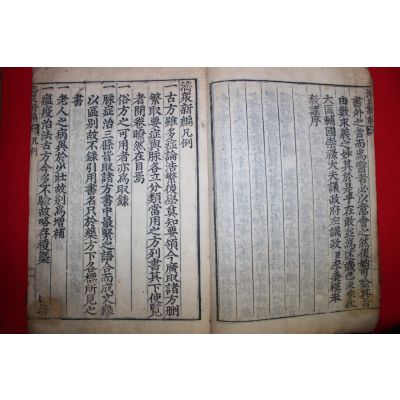 書外之旨而爲醫者必以意會之然後始可其言
由數求義之妙其於是乎在敢並爲述
大匡輔國崇祿大夫議政府左議政臣李秉模奉
敎謹序
濟衆新編凡例
古方雖多症論浩繁後學莫知要領今廣取諸方刪
繁取要症與脉各立分類當用之方列書其下使覽
者開卷瞭然在目焉
一俗方之可用者亦爲取錄
一脉症治三條皆取諸方書中最緊之語合而成文難
以區別故不錄引用書名只於藥方下各標所見之
書
一老人之病異於少壯故別爲增補
一瘟疫治法古方今多不驗故略存梗槩
凡例